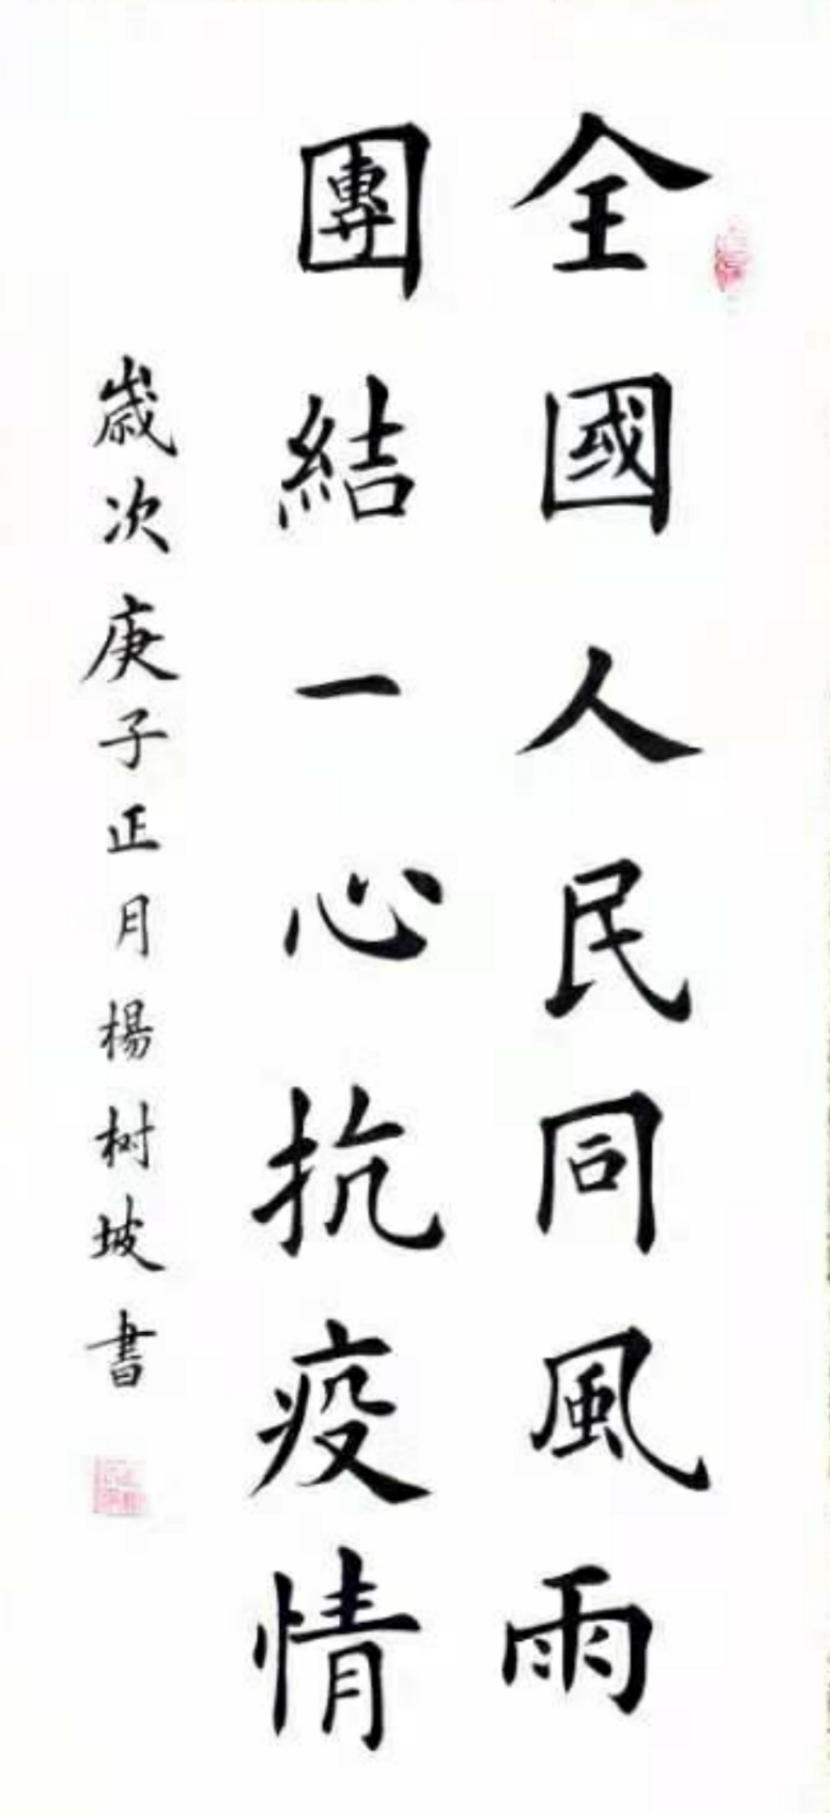 全國人民同風雨
團結一心抗疫情
歲次庚子正月楊树坡書